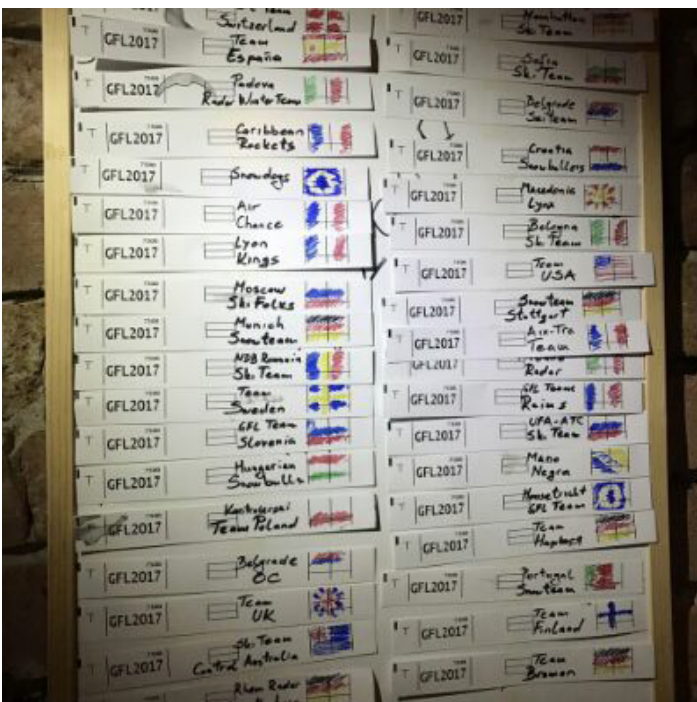 Switzerland
GFL2017
Team
España
GFL2017
Padova
Radar Winter Team
GFL2017
Caribbean
Rockets
GFL2017
Snowdogs
GFL2017
Air
Chance
GFL2017
Lyon
Kings
GFL2017
Moscow
Ski Folks
GFL2017
Munich
Snowteam
GFL2017
Ski Team
GFL2017
Team
Sweden
GFL2017
GFL Team
Slovenia
GFL2017
Hungarian
Snowbulls
GFL2017
Team Poland
GFL2017
Belgrade
OC
GFL2017
Team
UK
GFL2017
Ski Team
Central Australia
GFL2017
Rhein Radar
Manhattan
Ski Team
GFL2017
Sofia
Ski Team
GFL2017
Belgrade
Ski Team
GFL2017
Croatia
Snowballers
GFL2017
Macedonia
Lynx
GFL2017
Bologna
Ski Team
GFL2017
Team
USA
GFL2017
Snowteam
Stuttgart
GFL2017
Team
GFL2017
Radar
GFL2017
Reims
GFL2017
UFA-ATC
Ski Team
GFL2017
Mano
Negra
GFL2017
Maastricht
GFL Team
GFL2017
Team
Hamburg
GFL2017
Portugal
Snowteam
GFL2017
Team
Finland
GFL2017
Team
Bremen